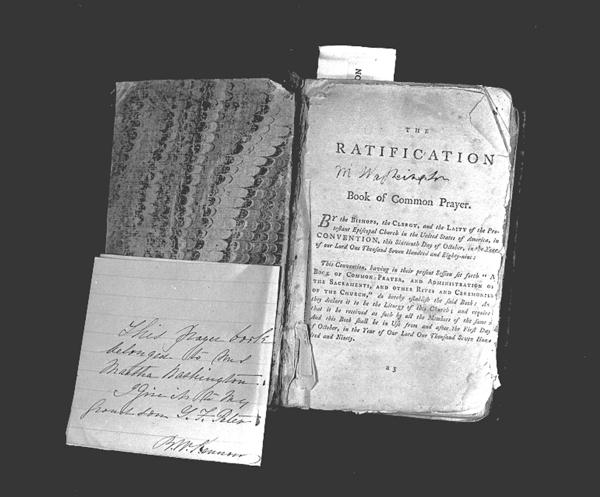 NO
THE
RATIFICATION
M Washington
Book of Common Prayer.
BY the BISHOPS, the CLERGY, and the LAITY of the Pro-
testant Episcopal Church in the United States of America, in
CONVENTION, this Sixteenth Day of October, in the Year
of our Lord One Thousand Seven Hundred and Eighty-nine:
This Convention, having in their present Session set forth "A
BOOK OF COMMON PRAYER, AND ADMINISTRATION OF
THE SACRAMENTS, AND OTHER RITES AND CEREMONIES
OF THE CHURCH," do hereby establish the said Book: And
they declare it to be the Liturgy of this Church; and require
that it be received as such by all the Members of the same:
And this Book shall be in Use from and after the First Day
of October, in the Year of Our Lord One Thousand Seven Hun
and Ninety.
a 3
This Prayer book
belonged to Mrs
Martha Washington.
I give it to my
Grand son G. F. Peter
B. W. Kennon